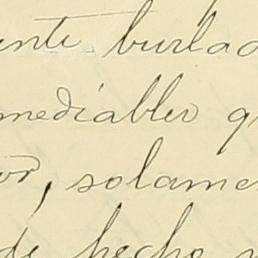 ente burlad
mediables q
or, solame
de hecho